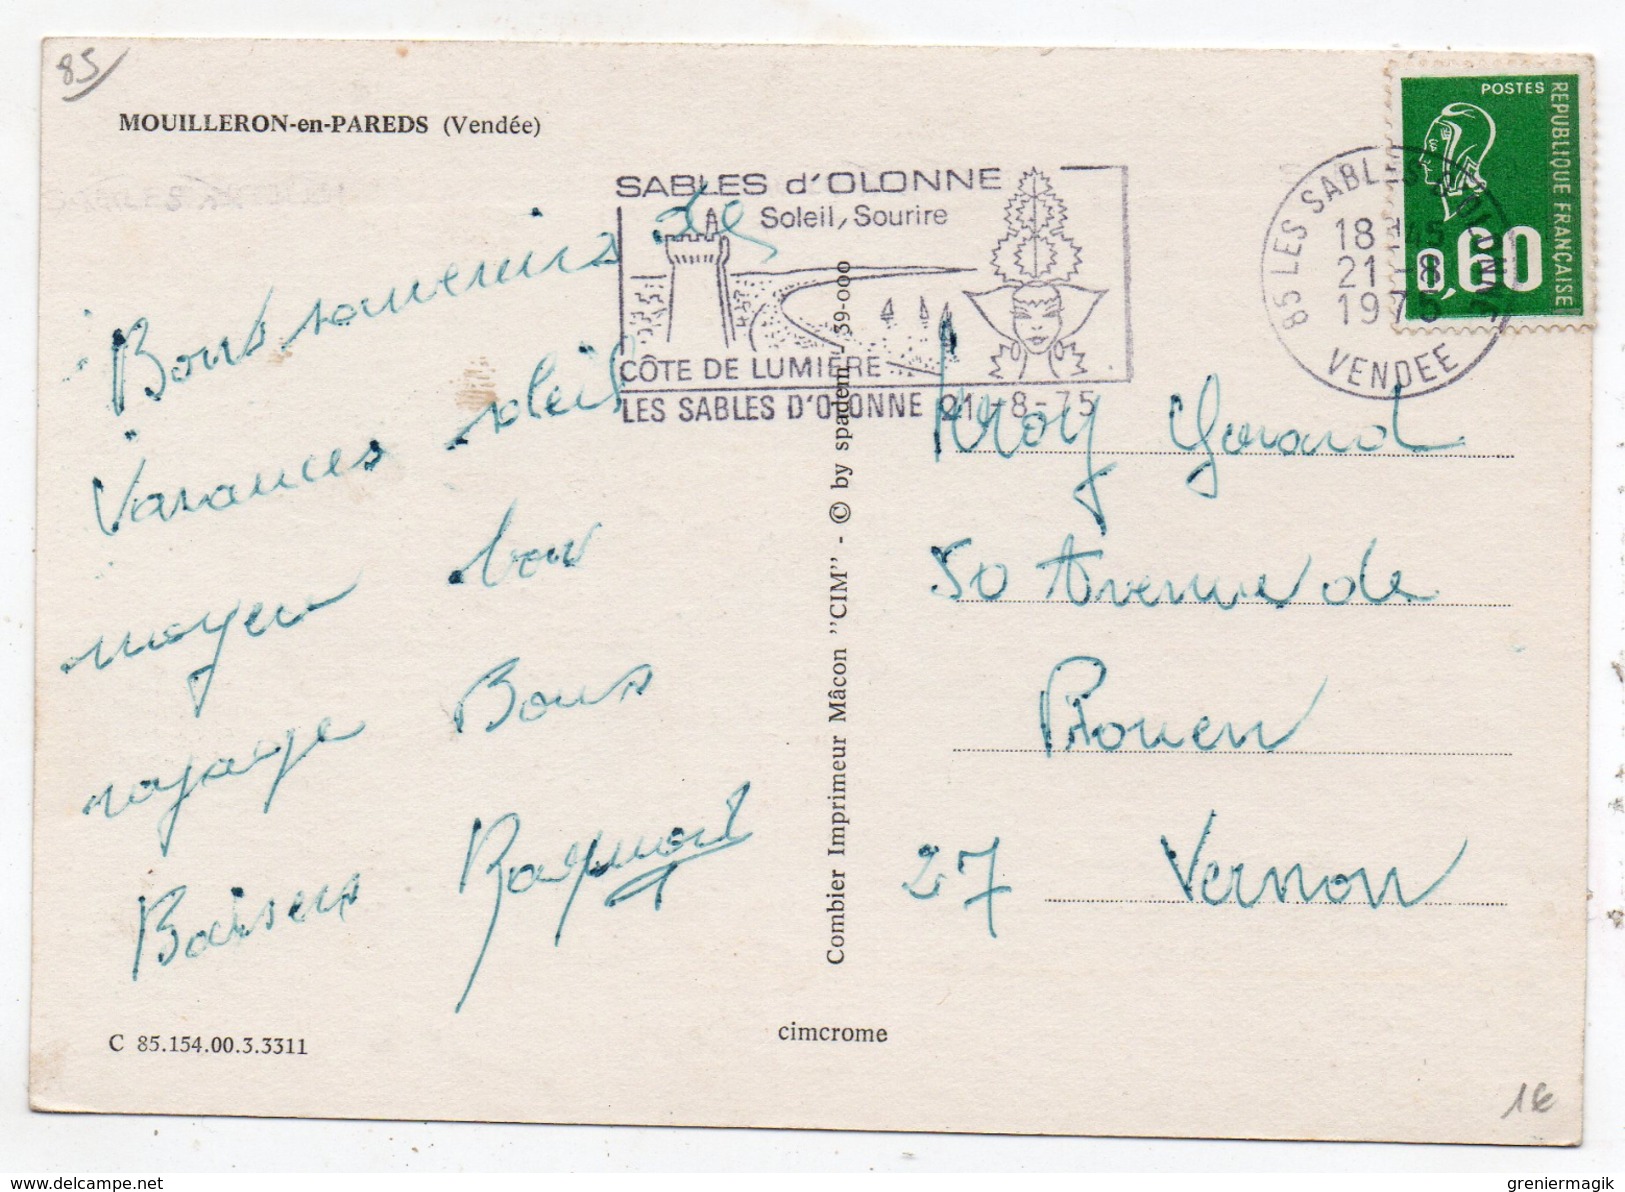 85
MOUILLERON-en-PAREDS (Vendée)
Bons souvenirs de
Vacances soleil
moyen bon
voyage Bons
Baisers Raymond
C 85.154.00.3.3311
SABLES d'OLONNE
Soleil, Sourire
CÔTE DE LUMIÈRE
LES SABLES D'OLONNE 21-8-75
Combier Imprimeur Mâcon "CIM" - © by spadem - 39-000
cimcrome
85 LES SABLES D'OLONNE
18 H45
21-8
1975
VENDEE
POSTES
REPUBLIQUE FRANÇAISE
0,60
Gerard
50 Avenue de
Rouen
27 Vernon
1€
www.delcampe.net
greniermagik